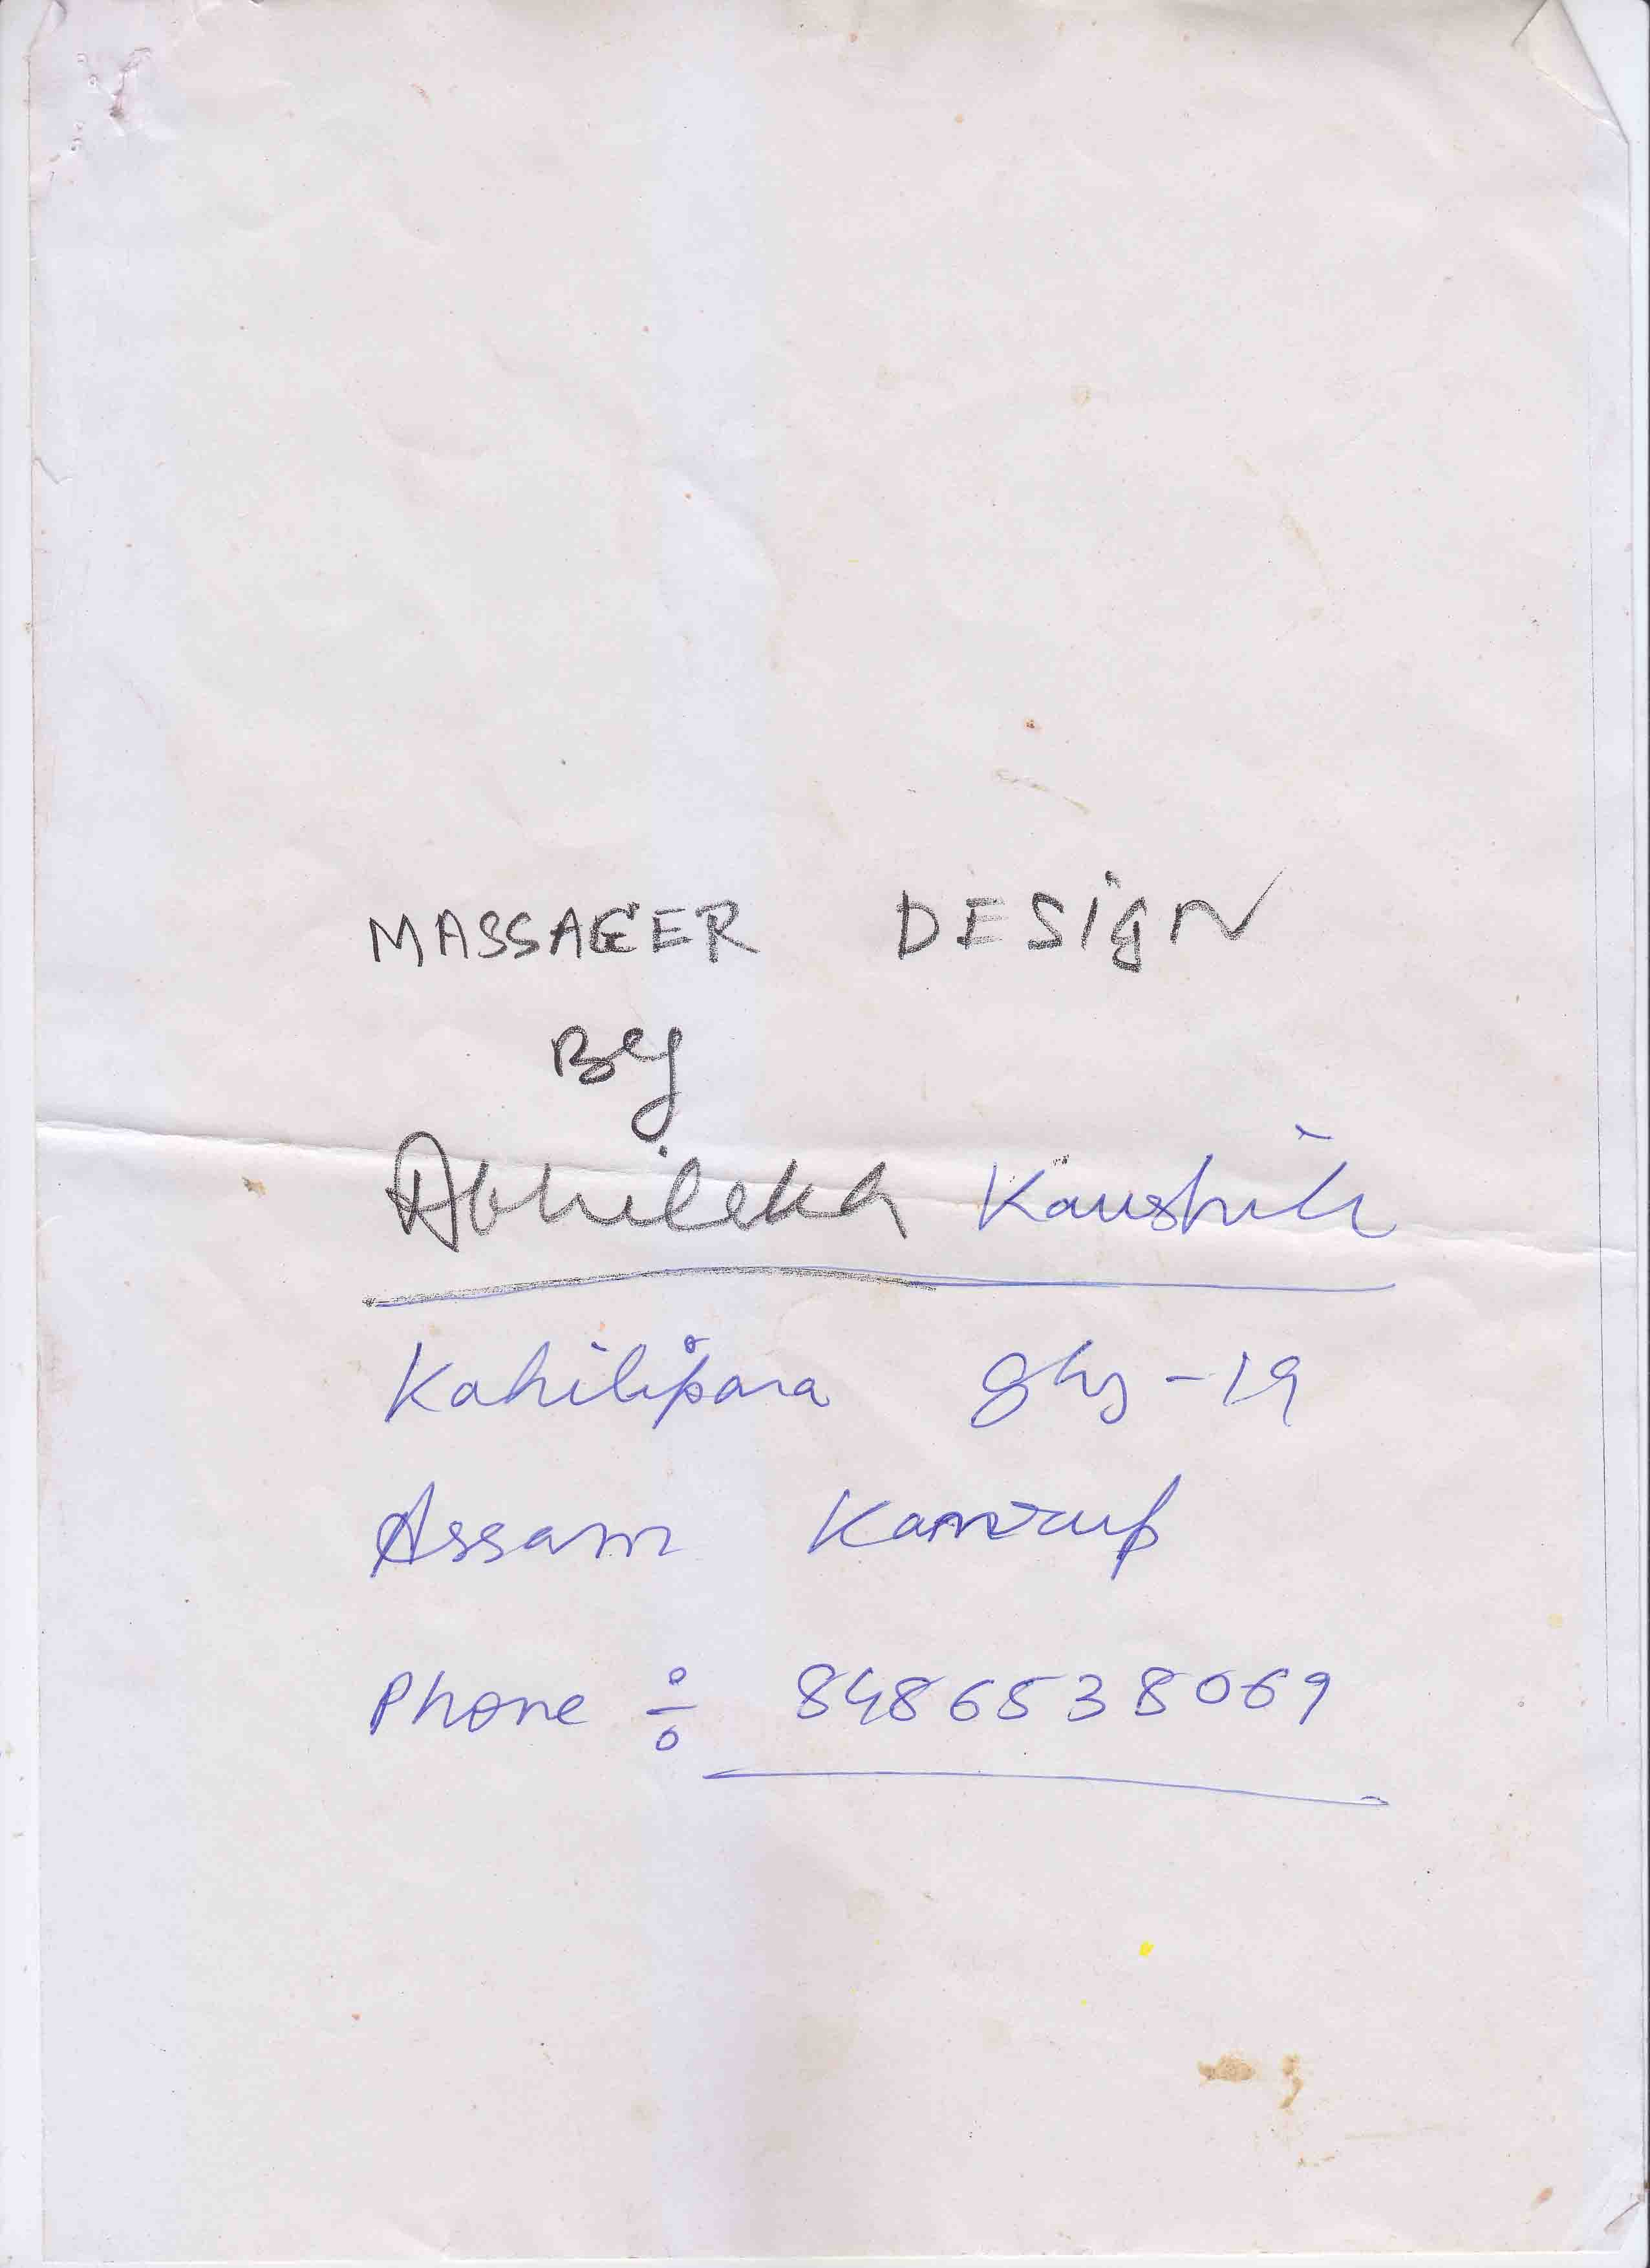 MASSAGER DESiGN
By
Abhilekh Kaushik
Kahilipara ghy - 19
Assam Kamrup
Phone ÷ 8486538069